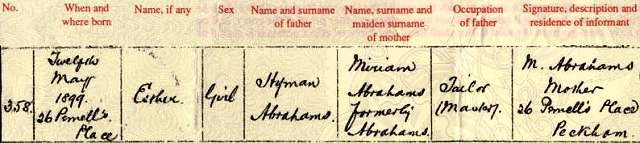 No.
When and where born
Name, if any
Sex
Name and surname of father
Name, surname and maiden surname of mother
Occupation of father
Signature, description and residence of informant
358.
Twelfth
May
1899.
26 Pennell's
Place
Esther.
Girl
Hyman
Abrahams.
Miriam
Abrahams
formerly
Abrahams.
Tailor
(Master).
M. Abrahams
Mother
26 Pennell's Place
Peckham.